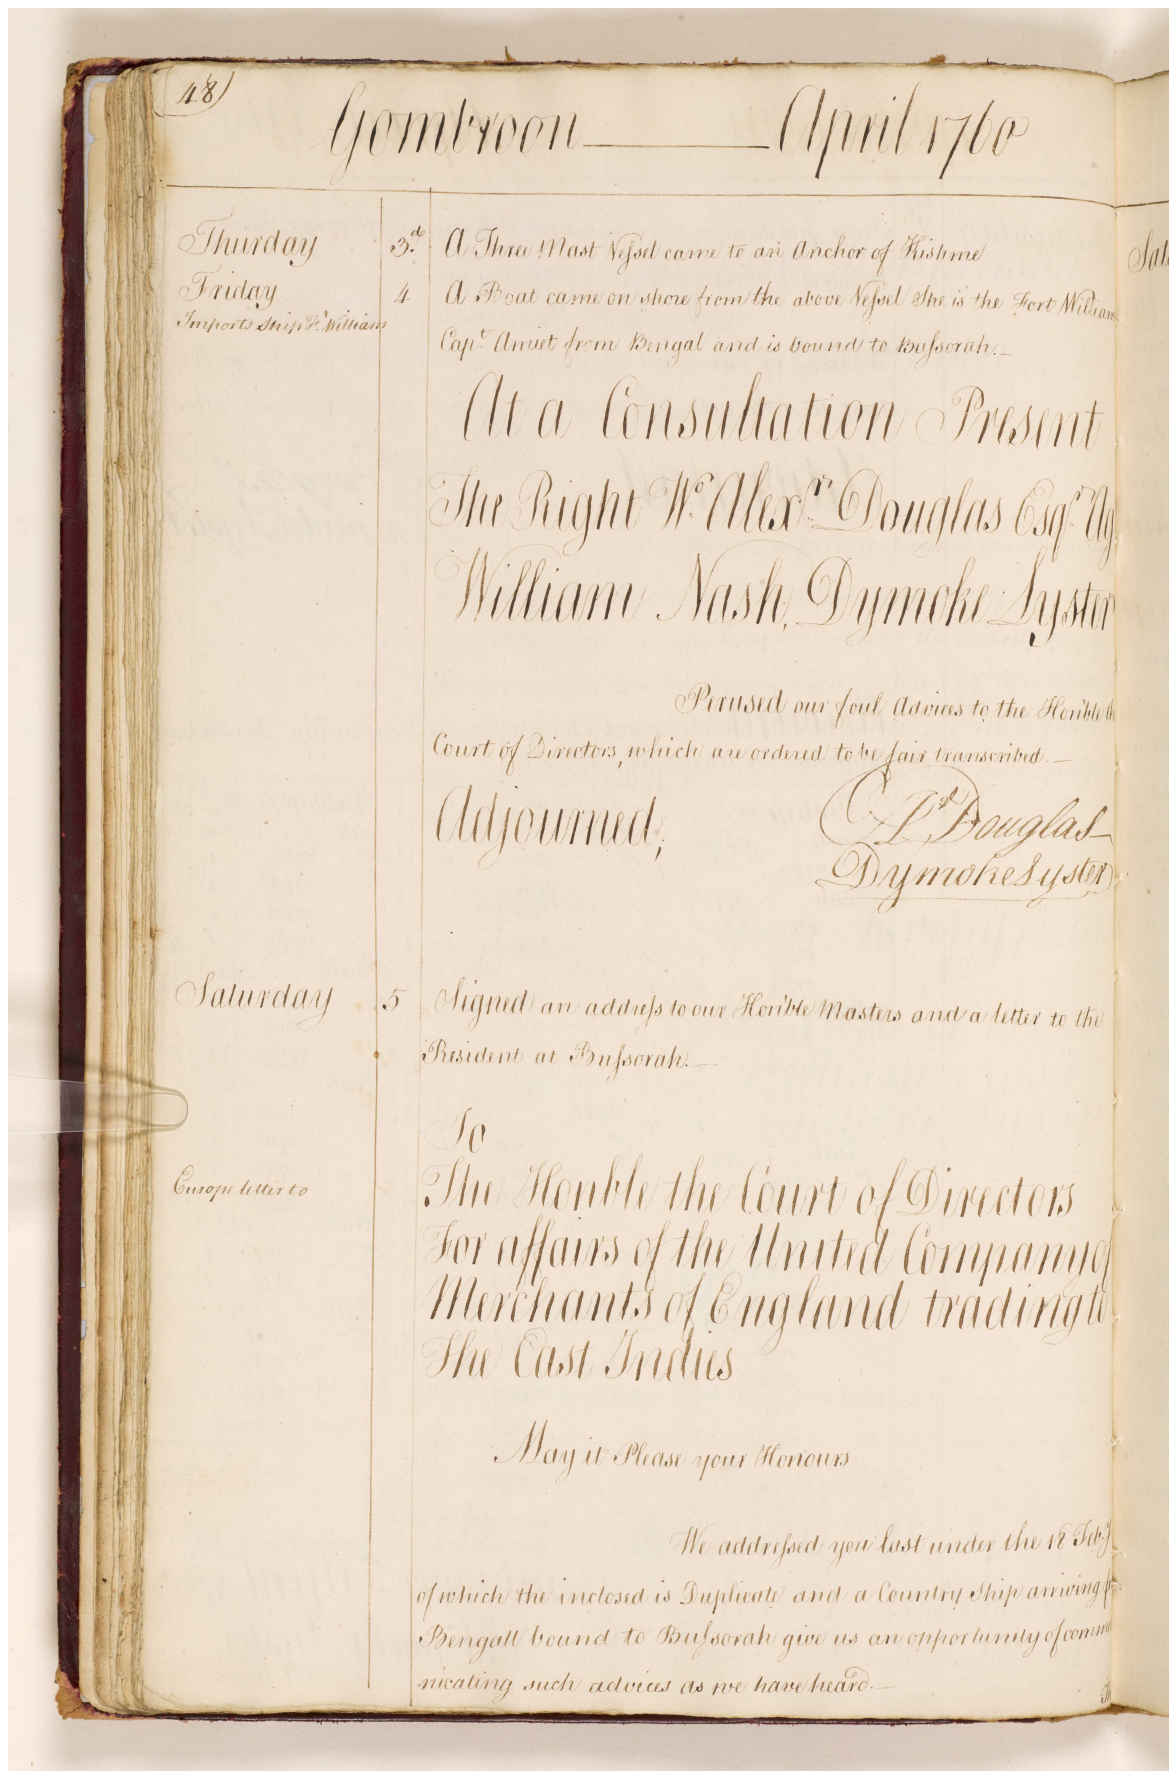 48)
Gombroon April 1760
Thurday 3.d A Three Mast Vessel came to an Anchor of Kishme
Friday 4 A Boat came on shore from the above Vessel She is the Fort William
Imports Ship Ft. William
Capt. Amiet from Bengal and is bound to Bussorah.
At a Consultation Present
The Right Wo. Alexr. Douglas Esqr. Ag
William Nash, Dymoke Lyster
Perused our foul Advices to the Honble the
Court of Directors, which are ordered to be fair transcribed.
Adjourned,
Ar Douglas
Dymoke Lyster
Saturday 5 Signed an address to our Honble Masters and a letter to the
President at Bussorah.
To
Europe letter to
The Honble the Court of Directors
For affairs of the United Company of
Merchants of England trading to
The East Indies
May it Please your Honours
We addressed you last under the 18 Feby
of which the inclosed is Duplicate and a Country Ship arriving
Bengall bound to Bussorah give us an opportunity of commu
nicating such advices as we have heard.
Sat